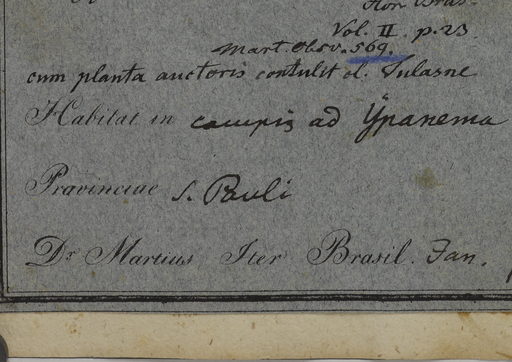 Flor. Bras.
Vol. II. p. 23.
Mart. Obsv. 569.
cum planta auctoris contulit cl. Tulasne
Habitat in campis ad Ypanema
Provinciae S. Pauli
Dr Martius Iter Brasil. Jan.